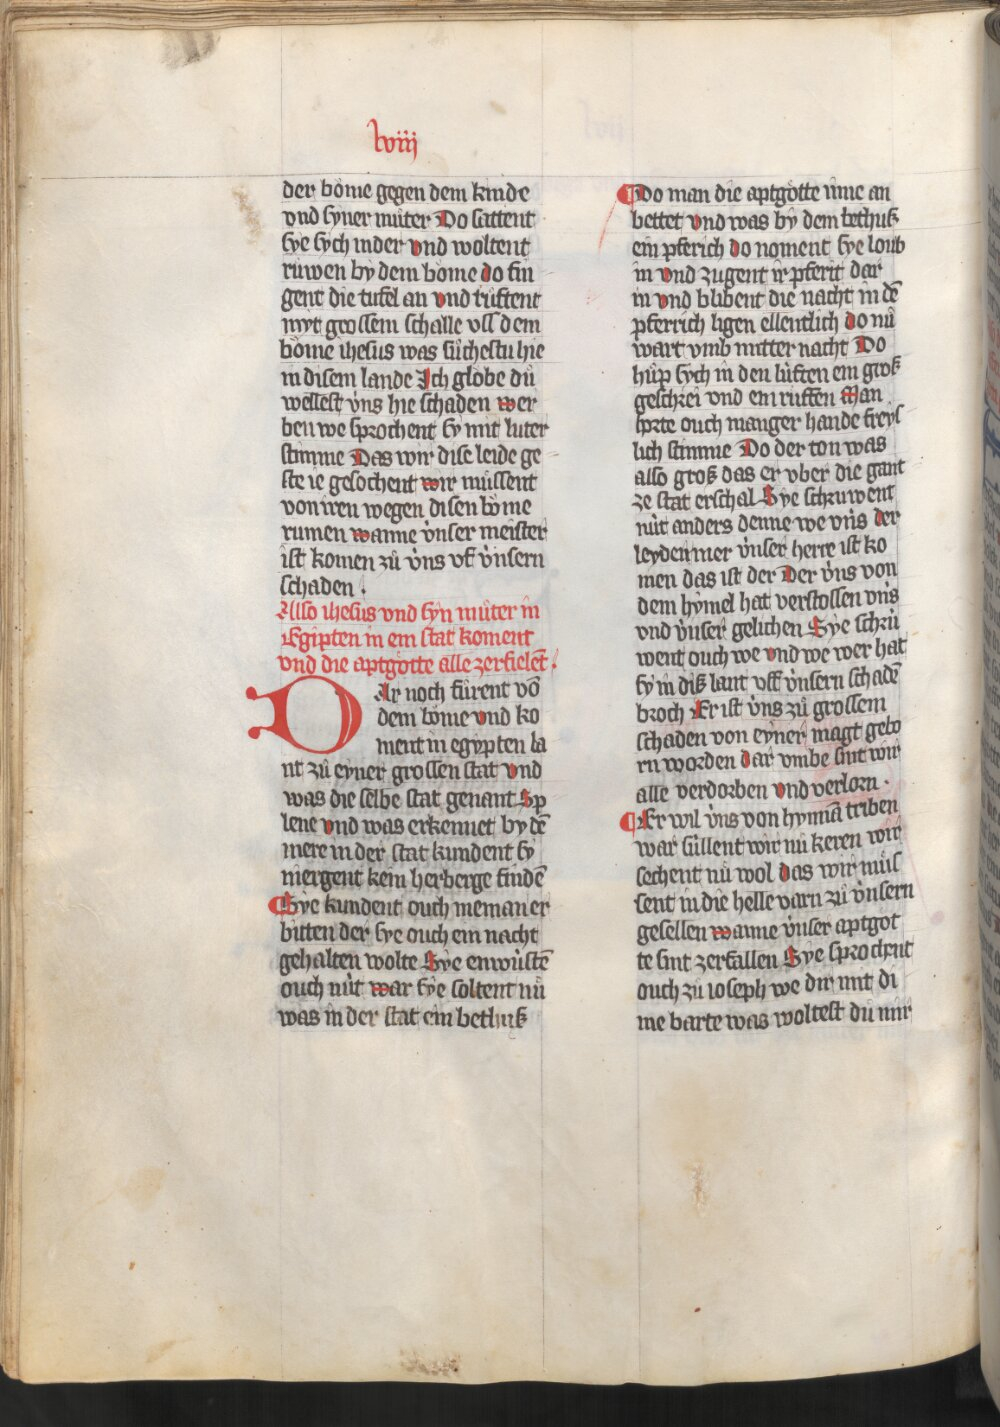 lviij
der bo̊me gegen dem kinde
vnd syner mu̇ter Do sattent
sye sych inder vnd woltent
ru̇wen by dem bo̊me do fin
gent die tufel an vnd ru̇ftent
myt grossem schalle vss dem
bo̊me ihesus was su̇chestu hie
in disem lande Jch globe du̇
wellest v̇ns hie schaden wer
ben we sprochent sy mit luter
stimme Das wir dise leide ge
ste ie gesochent wir mu̇ssent
von iren wegen disen bo̊me
rumen wanne v̇nser meister
ist komen zu̇ v̇ns vf v̇nsern
schaden .
Also ihesus vnd syn mu̇ter in
Egipten in ein stat koment
vnd die aptgo̊tte alle zerfielēt .
DAr noch fu̇rent vō
dem bo̊me vnd ko
ment in egypten la
nt zu̇ eyner grossen stat vnd
was die selbe stat genant Sy
lene vnd was erkennet by dē
mere in der stat kundent sy
niergent kein herberge findē
Sye kundent ouch nieman er
bitten der sye ouch ein nacht
gehalten wolte Sye enwu̇stē
ouch nu̇t war sye soltent nu̇
was in der stat ein bethuß
Do man die aptgo̊tte inne an
bettet vnd was by dem bethuß
ein pferich do noment sye loub
in vnd zugent ir pferit dar
in vnd blibent die nacht in dē
pferrich ligen ellentlich do nu̇
wart vmb mitter nacht Do
hu̇p sych in den lu̇ften ein groß
geschrei vnd ein ruffen Man
horte ouch manger hande freys
lich stimme Do der ton was
also groß das er vber die gant
ze stat erschal Sye schruwent
nu̇t anders denne we v̇ns der
leyden mer v̇nser herre ist ko
men das ist der Der v̇ns von
dem hymel hat verstossen vns
vnd v̇nser gelichen Sye schru̇
went ouch we vnd we wer hat
sy in diß lant vff v̇nsern schadē
broch Er ist v̇ns zu̇ grossem
schaden von eyner magt gebo
rn worden dar vmbe sint wir
alle verdorben vnd verlorn .
Er wil v̇ns von hynnā triben
war su̇llent wir nu̇ keren wir
sechent nu̇ wol das wir mu̇s
sent in die helle varn zu̇ v̇nsern
gesellen wanne v̇nser aptgot
te sint zerfallen Sye sprochent
ouch zu̇ ioseph we dir mit di
me barte was woltest du̇ mir